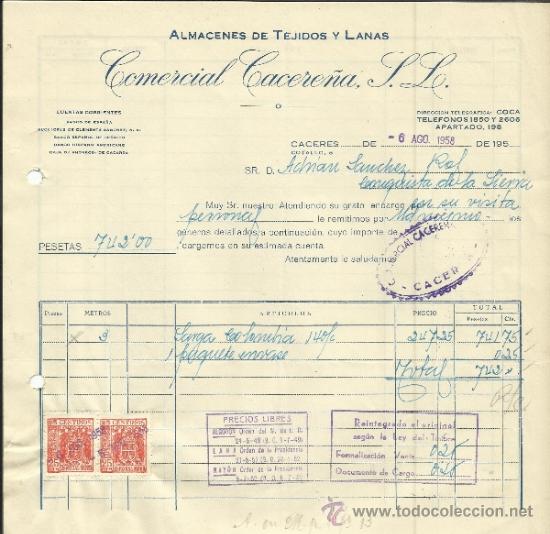 ALMACENES DE TEJIDOS Y LANAS
Comercial Cacereña, S. L.
CUENTAS CORRIENTES
BANCO DE ESPAÑA
BANCO ESPAÑOL DE CREDITO
BANCO HISPANO AMERICANO
CAJA DE AHORROS DE CACERES
DIRECCION TELEGRAFICA: COCA
TELEFONOS 1850 Y 2606
APARTADO, 198
CACERES DE -6 AGO. 1958 DE 195
SR. D. Adrian Sanchez Rol
Conquista de la Sierra
Muy Sr. nuestro: Atendiendo su grato encargo por su visita
personal le remitimos por los
géneros detallados a continuación, cuyo importe de
PESETAS 742'00 cargamos en su estimada cuenta.
Atentamente le saludamos
COMERCIAL CACEREÑA
CACERES
Piezas METROS ARTICULOS PRECIO TOTAL
Pesetas Cts.
3 Sarga Colombia 140/c 247.25 741 75
1 paquete envase 0.25
Total 742
PRECIOS LIBRES
ALGODON Orden del M. de I. C.
LANA Orden de la Presidencia
RAYON Orden de la Presidencia
Reintegrado el original
según la Ley del Timbre
Formalización Venta 0,25
Documento de Cargo 0,25
25 CENTIMOS
25 CENTIMOS
todocoleccion.net